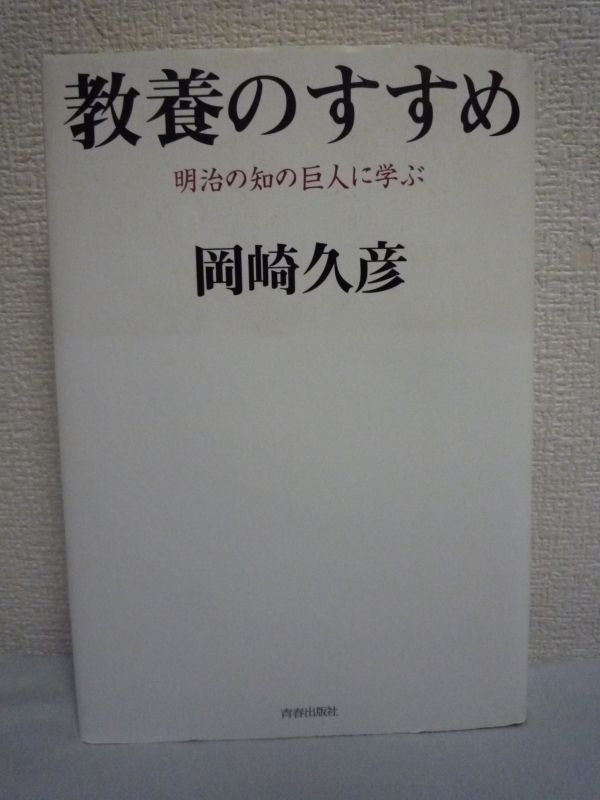 教養のすすめ
明治の知の巨人に学ぶ
岡崎久彦
青春出版社